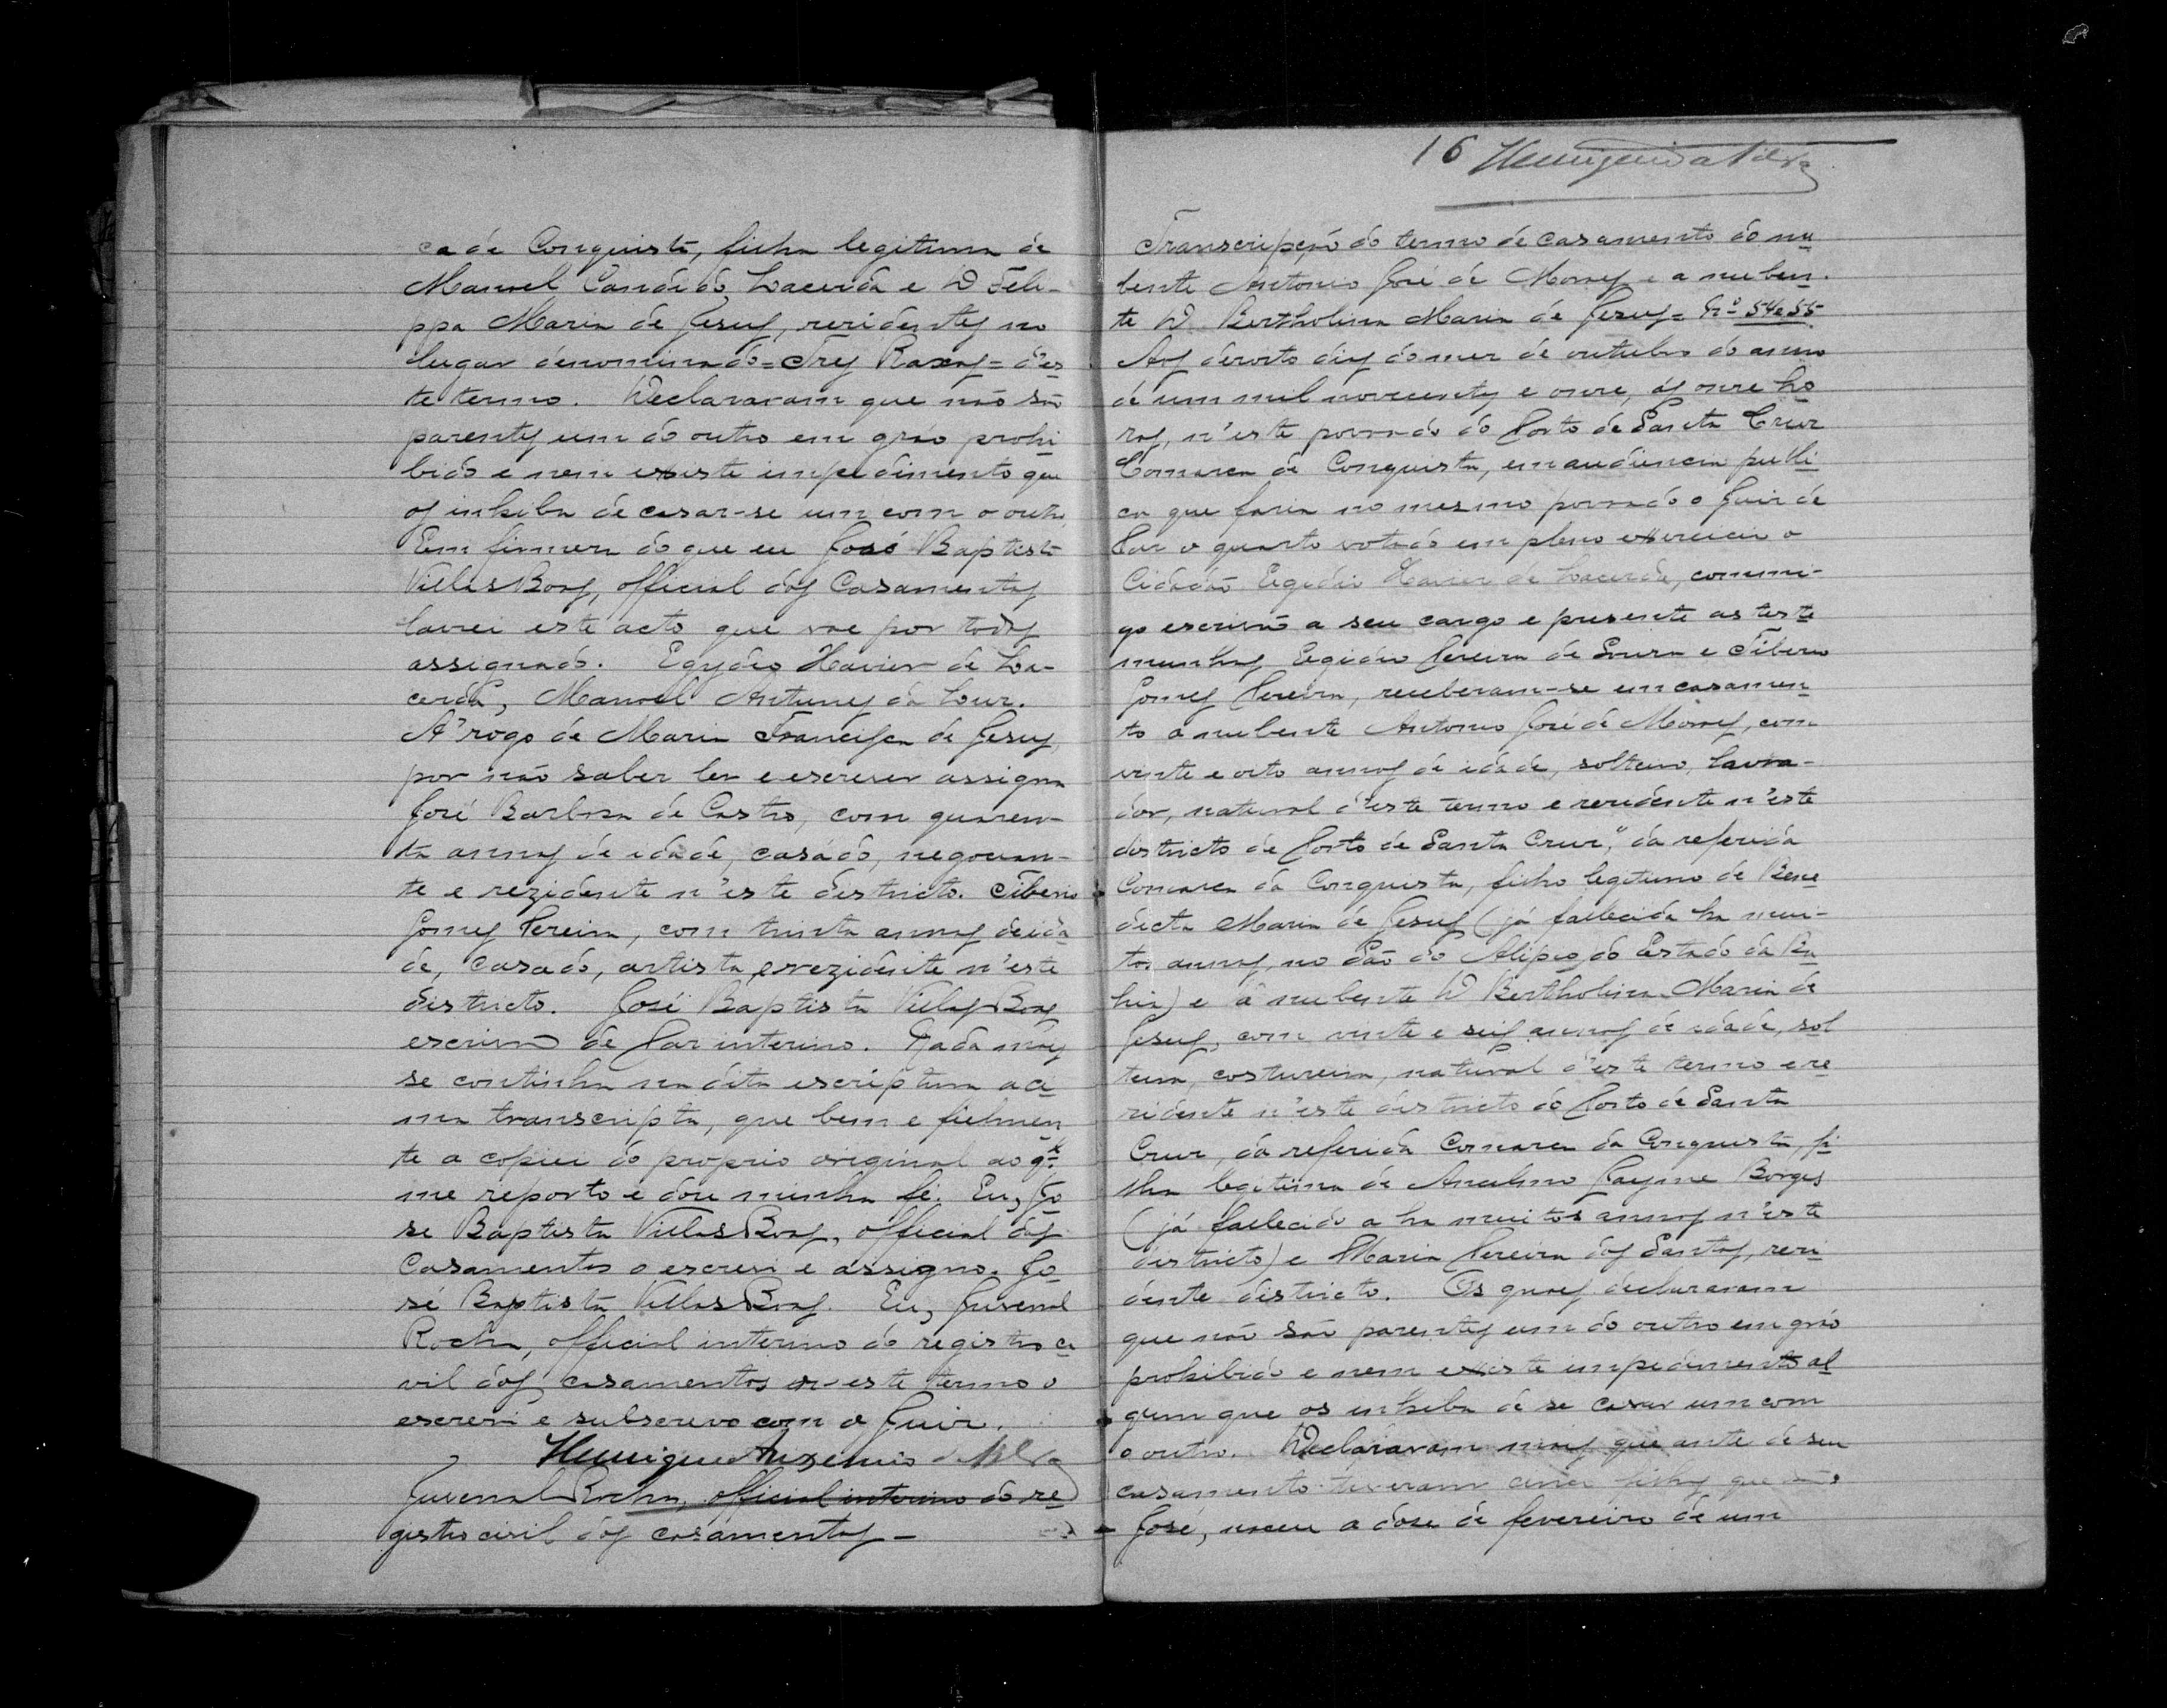 ca da Conquista, filha legitima de
Manoel Candido Lacerda e D Feli-
ppa Maria de Jesus, residentes no
lugar denominado = Trez Raxas = d'es
te termo. Declararam que não são
parentes um do outro em gráo prohi
bido e nem existe impedimento que
os inhiba de casar-se um com o outro.
Em firmeza do que eu José Baptista
Villas Boas, official dos Casamentos
lavrei este acto que vae por todos
assignado. Egydio Xavier de La-
cerda, Manoel Antunes da Luz.
A' rogo de Maria Francisca de Jesus,
por não saber ler e escrever assigna
José Barbosa de Castro, com quaren-
ta annos de idade, casado, negocian-
te e rezidente n'este districto. Tiberio
Gomes Pereira, com trinta annos de ida
de, casado, artista, e rezidente n'este
districto. José Baptista Villas Boas
escrivão de Paz interino. Nada mais
se continha na dita escriptura aci
ma transcripta, que bem e fielmen
te a copiei do proprio original ao qe
me reporto e dou minha fé. Eu, Jo
se Baptista Villas Boas, official dos
Casamentos o escrevi e assigno. Jo
sé Baptista Villas Boas. Eu, Juvenal
Rocha, official interino do registro ci
vil dos casamentos n'este termo o
escrevi e subscrevo com o Juiz.
Henrique Auxencio da Silva
Juvenal Rocha, official interino do re
gistro civil dos casamentos -
16 Henrique da Silva
Transcripção do termo de casamento do nu
bente Antonio José de Moraes e a nuben-
te D. Bertholina Maria de Jesus = Nº 54 e 55
Aos dezoito dias do mez de outubro do anno
de um mil novecentos e onze, ás onze ho
ras, n'este povoado do Porto de Santa Cruz
Comarca de Conquista, em audiencia publi
ca que fazia no mesmo povoado o Juiz de
Paz o quarto votado em pleno exercicio o
Cidadão Egidio Xavier de Lacerda, commi-
go escrivão a seu cargo e presente as teste
munhas Egidio Pereira de Souza e Tiberio
Gomes Pereira, receberam-se em casamen
to o nubente Antonio José de Moraes, com
vinte e oito annos de idade, solteiro, lavra-
dor, natural d'este termo e rezidente n'este
districto de Porto de Santa Cruz, da referida
Comarca da Conquista, filho legitimo de Bene
dicta Maria de Jesus (já fallecida ha mui-
tos annos, no São do Alipio, do Estado da Ba
hia) e a nubente D Bertholina Maria de
Jesus, com vinte e seis annos de idade, sol
teira, costureira, natural d'este termo e re
zidente n'este districto do Porto de Santa
Cruz, da referida Comarca da Conquista, fi
lha legitima de Ancelmo Cayme Borges
(já fallecido a ha muitos annos n'este
districto) e Maria Pereira dos Santos, rezi
dente districto. Os quaes declararam
que não são parentes um do outro em gráo
prohibido e nem existe impedimento al
gum que os inhiba de se casar um com
o outro. Declararam mais que ante de seu
casamento tiveram cinco filhos que são
José, nasceu a doze de fevereiro de um